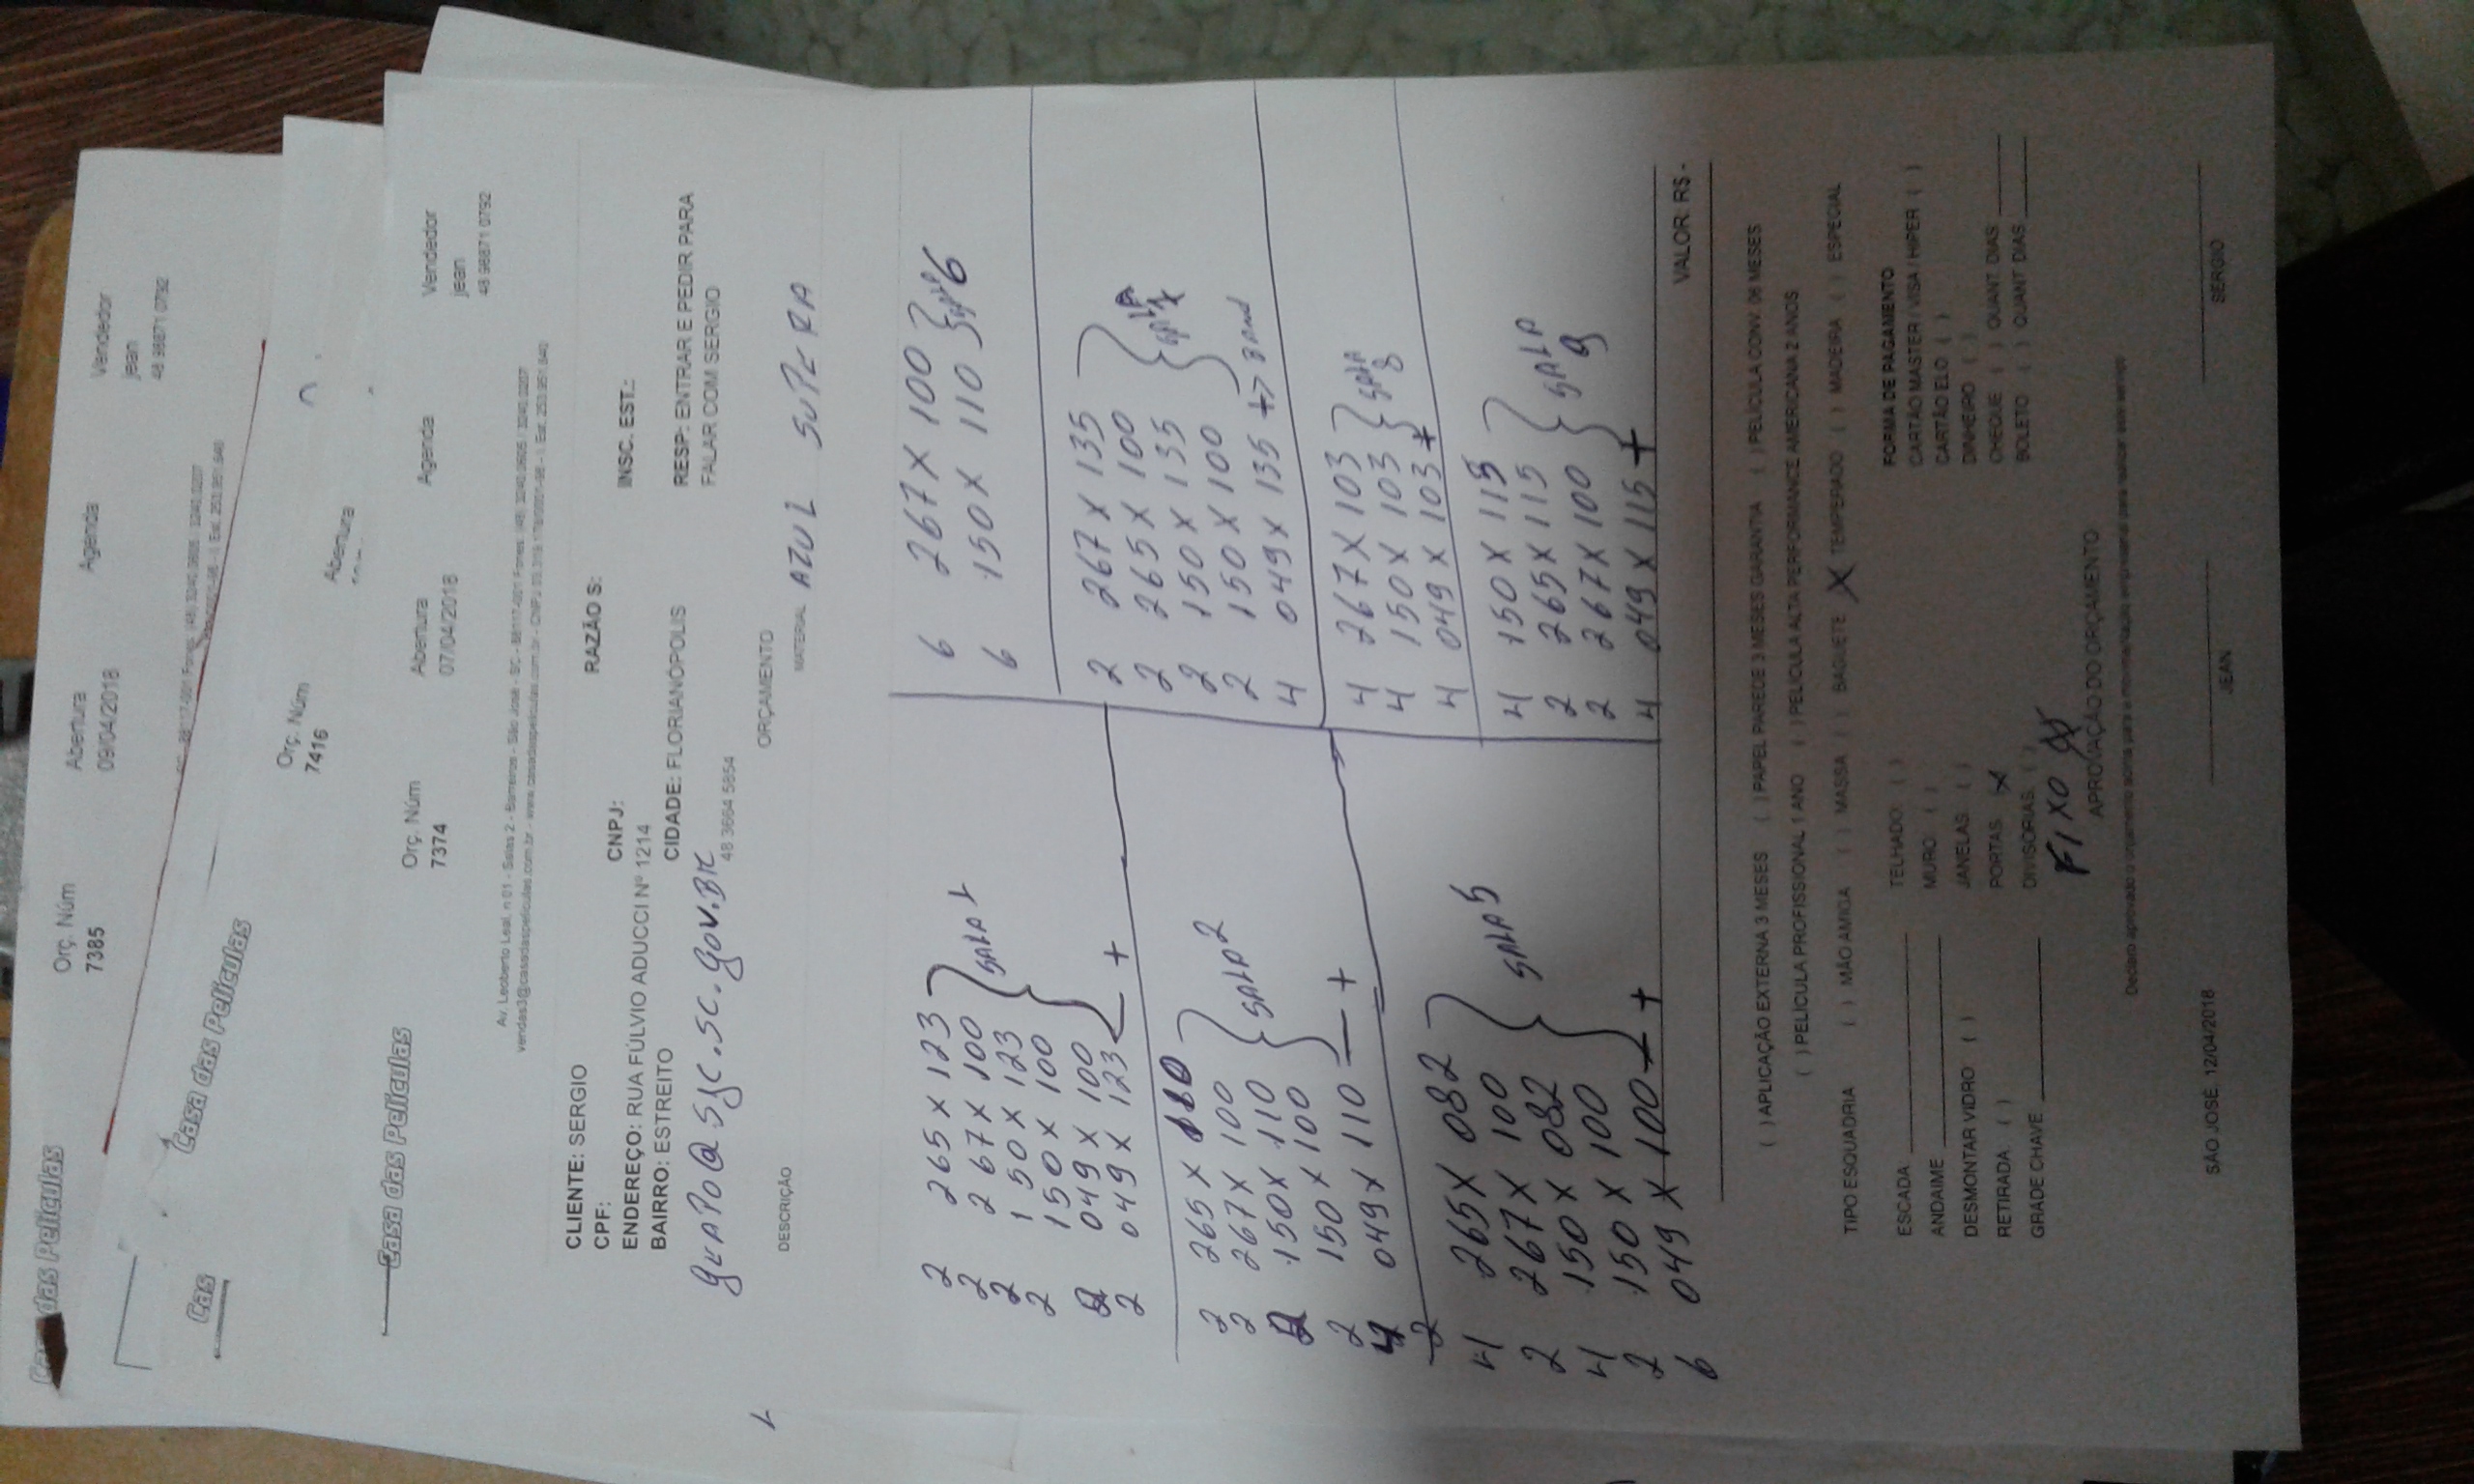 Casa das Películas
Orç. Núm
7385
Abertura
09/04/2018
Agenda
Vendedor
jean
48 98871 0792
Cas
Casa das Películas
Orç. Núm
7416
Abertura
Casa das Películas
Orç. Núm
7374
Abertura
07/04/2018
Agenda
Vendedor
jean
48 98871 0792
Av. Leoberto Leal, n 01 - Salas 2 - Barreiros - São José - SC
CLIENTE: SERGIO
RAZÃO S:
CPF:
CNPJ:
INSC. EST.:
ENDEREÇO: RUA FÚLVIO ADUCCI Nº 1214
BAIRRO: ESTREITO
CIDADE: FLORIANÓPOLIS
RESP: ENTRAR E PEDIR PARA
FALAR COM SERGIO
48 3664 5854
ORÇAMENTO
DESCRIÇÃO
MATERIAL AZUL
2 265 x 123
2 267 x 100
2 150 x 123
2 150 x 100
2 049 x 100
2 049 x 123
SALA 1
2 265 x 110
2 267 x 100
2 150 x 110
2 150 x 100
4 049 x 110
SALA 2
4 265 x 082
2 267 x 100
4 150 x 082
2 150 x 100
6 049 x 100
SALA 5
6 267 x 100
6 150 x 110
SALA 6
2 267 x 135
2 265 x 100
2 150 x 135
2 150 x 100
4 049 x 135
SALA
4 267 x 103
4 150 x 103
4 049 x 103
SALA
8
4 150 x 115
2 265 x 115
2 267 x 100
4 049 x 115
SALA
9
VALOR: R$ -
( ) APLICAÇÃO EXTERNA 3 MESES ( ) PAPEL PAREDE 3 MESES GARANTIA ( ) PELÍCULA CONV. 06 MESES
( ) PELÍCULA PROFISSIONAL 1 ANO ( ) PELICULA ALTA PERFORMANCE AMERICANA 2 ANOS
TIPO ESQUADRIA ( ) MÃO AMIGA ( ) MASSA ( ) BAGUETE X TEMPERADO ( ) MADEIRA ( ) ESPECIAL
ESCADA
ANDAIME
DESMONTAR VIDRO ( )
RETIRADA ( )
GRADE CHAVE
TELHADO ( )
MURO ( )
JANELAS ( )
PORTAS X
DIVISÓRIAS ( )
FIXO X
FORMA DE PAGAMENTO
CARTÃO MASTER / VISA / HIPER ( )
CARTÃO ELO ( )
DINHEIRO ( )
CHEQUE ( ) QUANT DIAS
BOLETO ( ) QUANT DIAS
APROVAÇÃO DO ORÇAMENTO
SÃO JOSÉ, 12/04/2018
JEAN
SERGIO